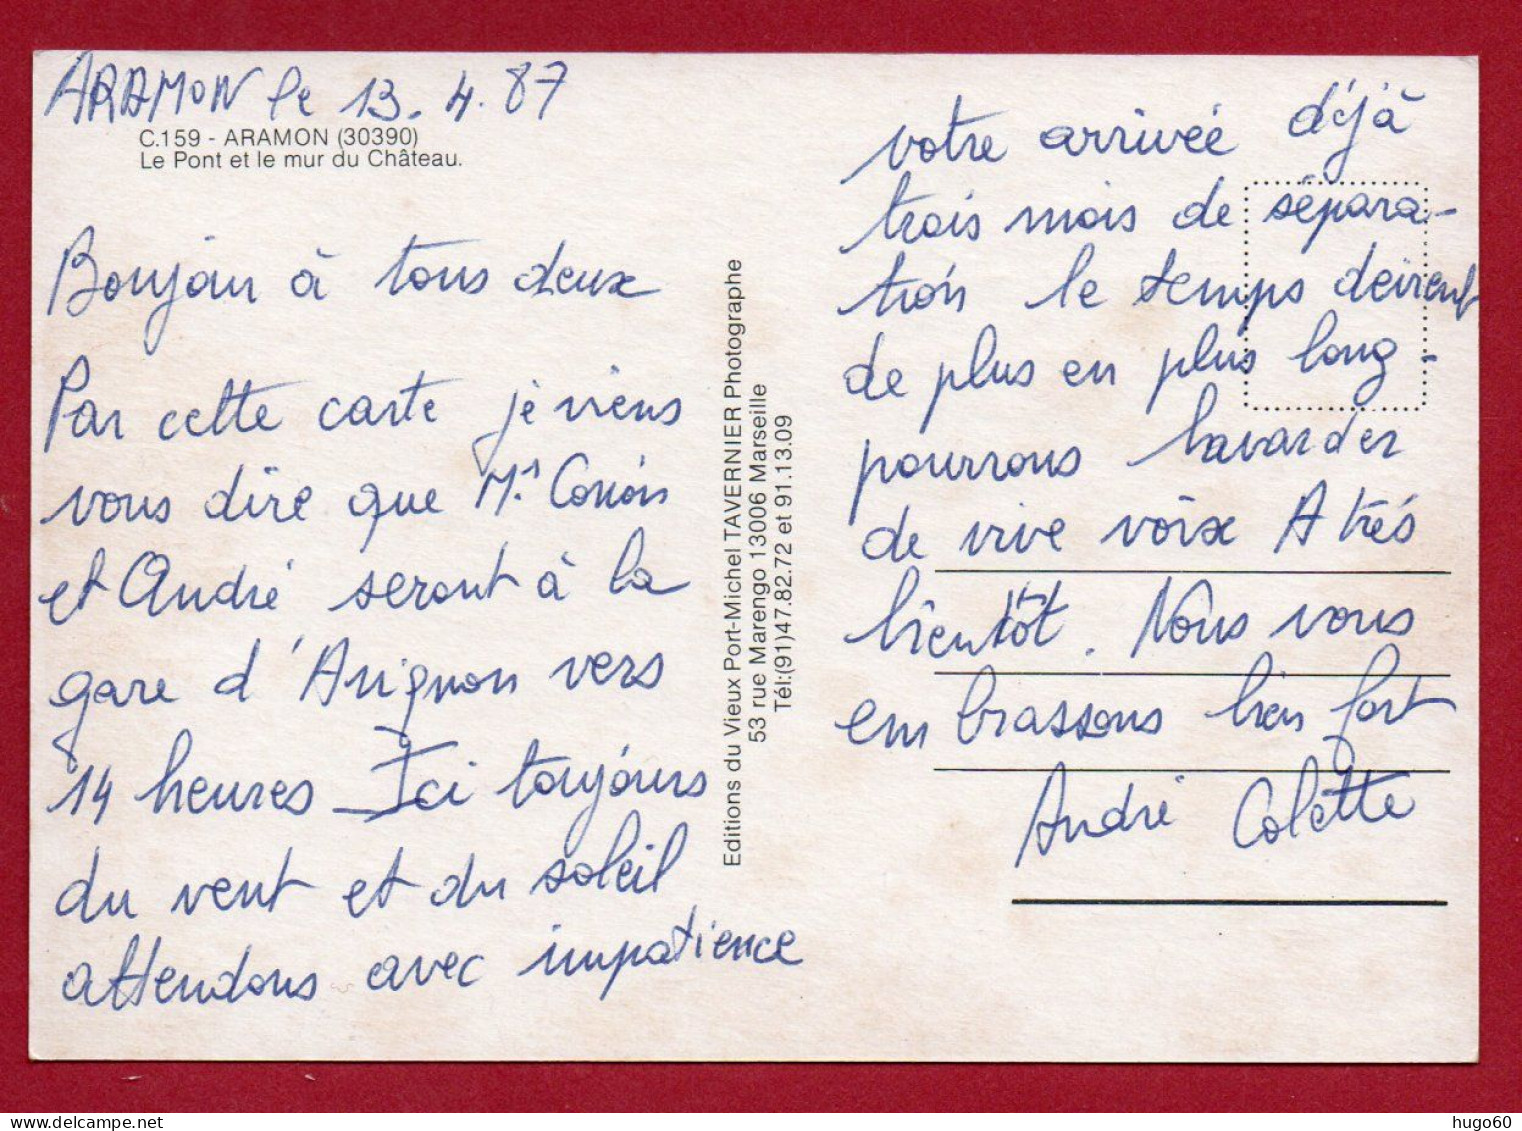 ARAMON le 13.4.87
C.159 - ARAMON (30390)
Le Pont et le mur du Château.
Bonjour à tous deux
Par cette carte je viens
vous dire que Mr
et André seront à la
gare d'Avignon vers
14 heures _ Ici toujours
du vent et du soleil
attendons avec impatience
Editions du Vieux Port-Michel TAVERNIER Photographe
53 rue Marengo 13006 Marseille
Tél:(91)47.82.72 et 91.13.09
votre arrivée déjà
trois mois de sépara-
tion le temps devient
de plus en plus long -
pourrons bavarder
de vive voix A très
bientôt. Nous vous
embrassons bien fort
André Colette
hugo60